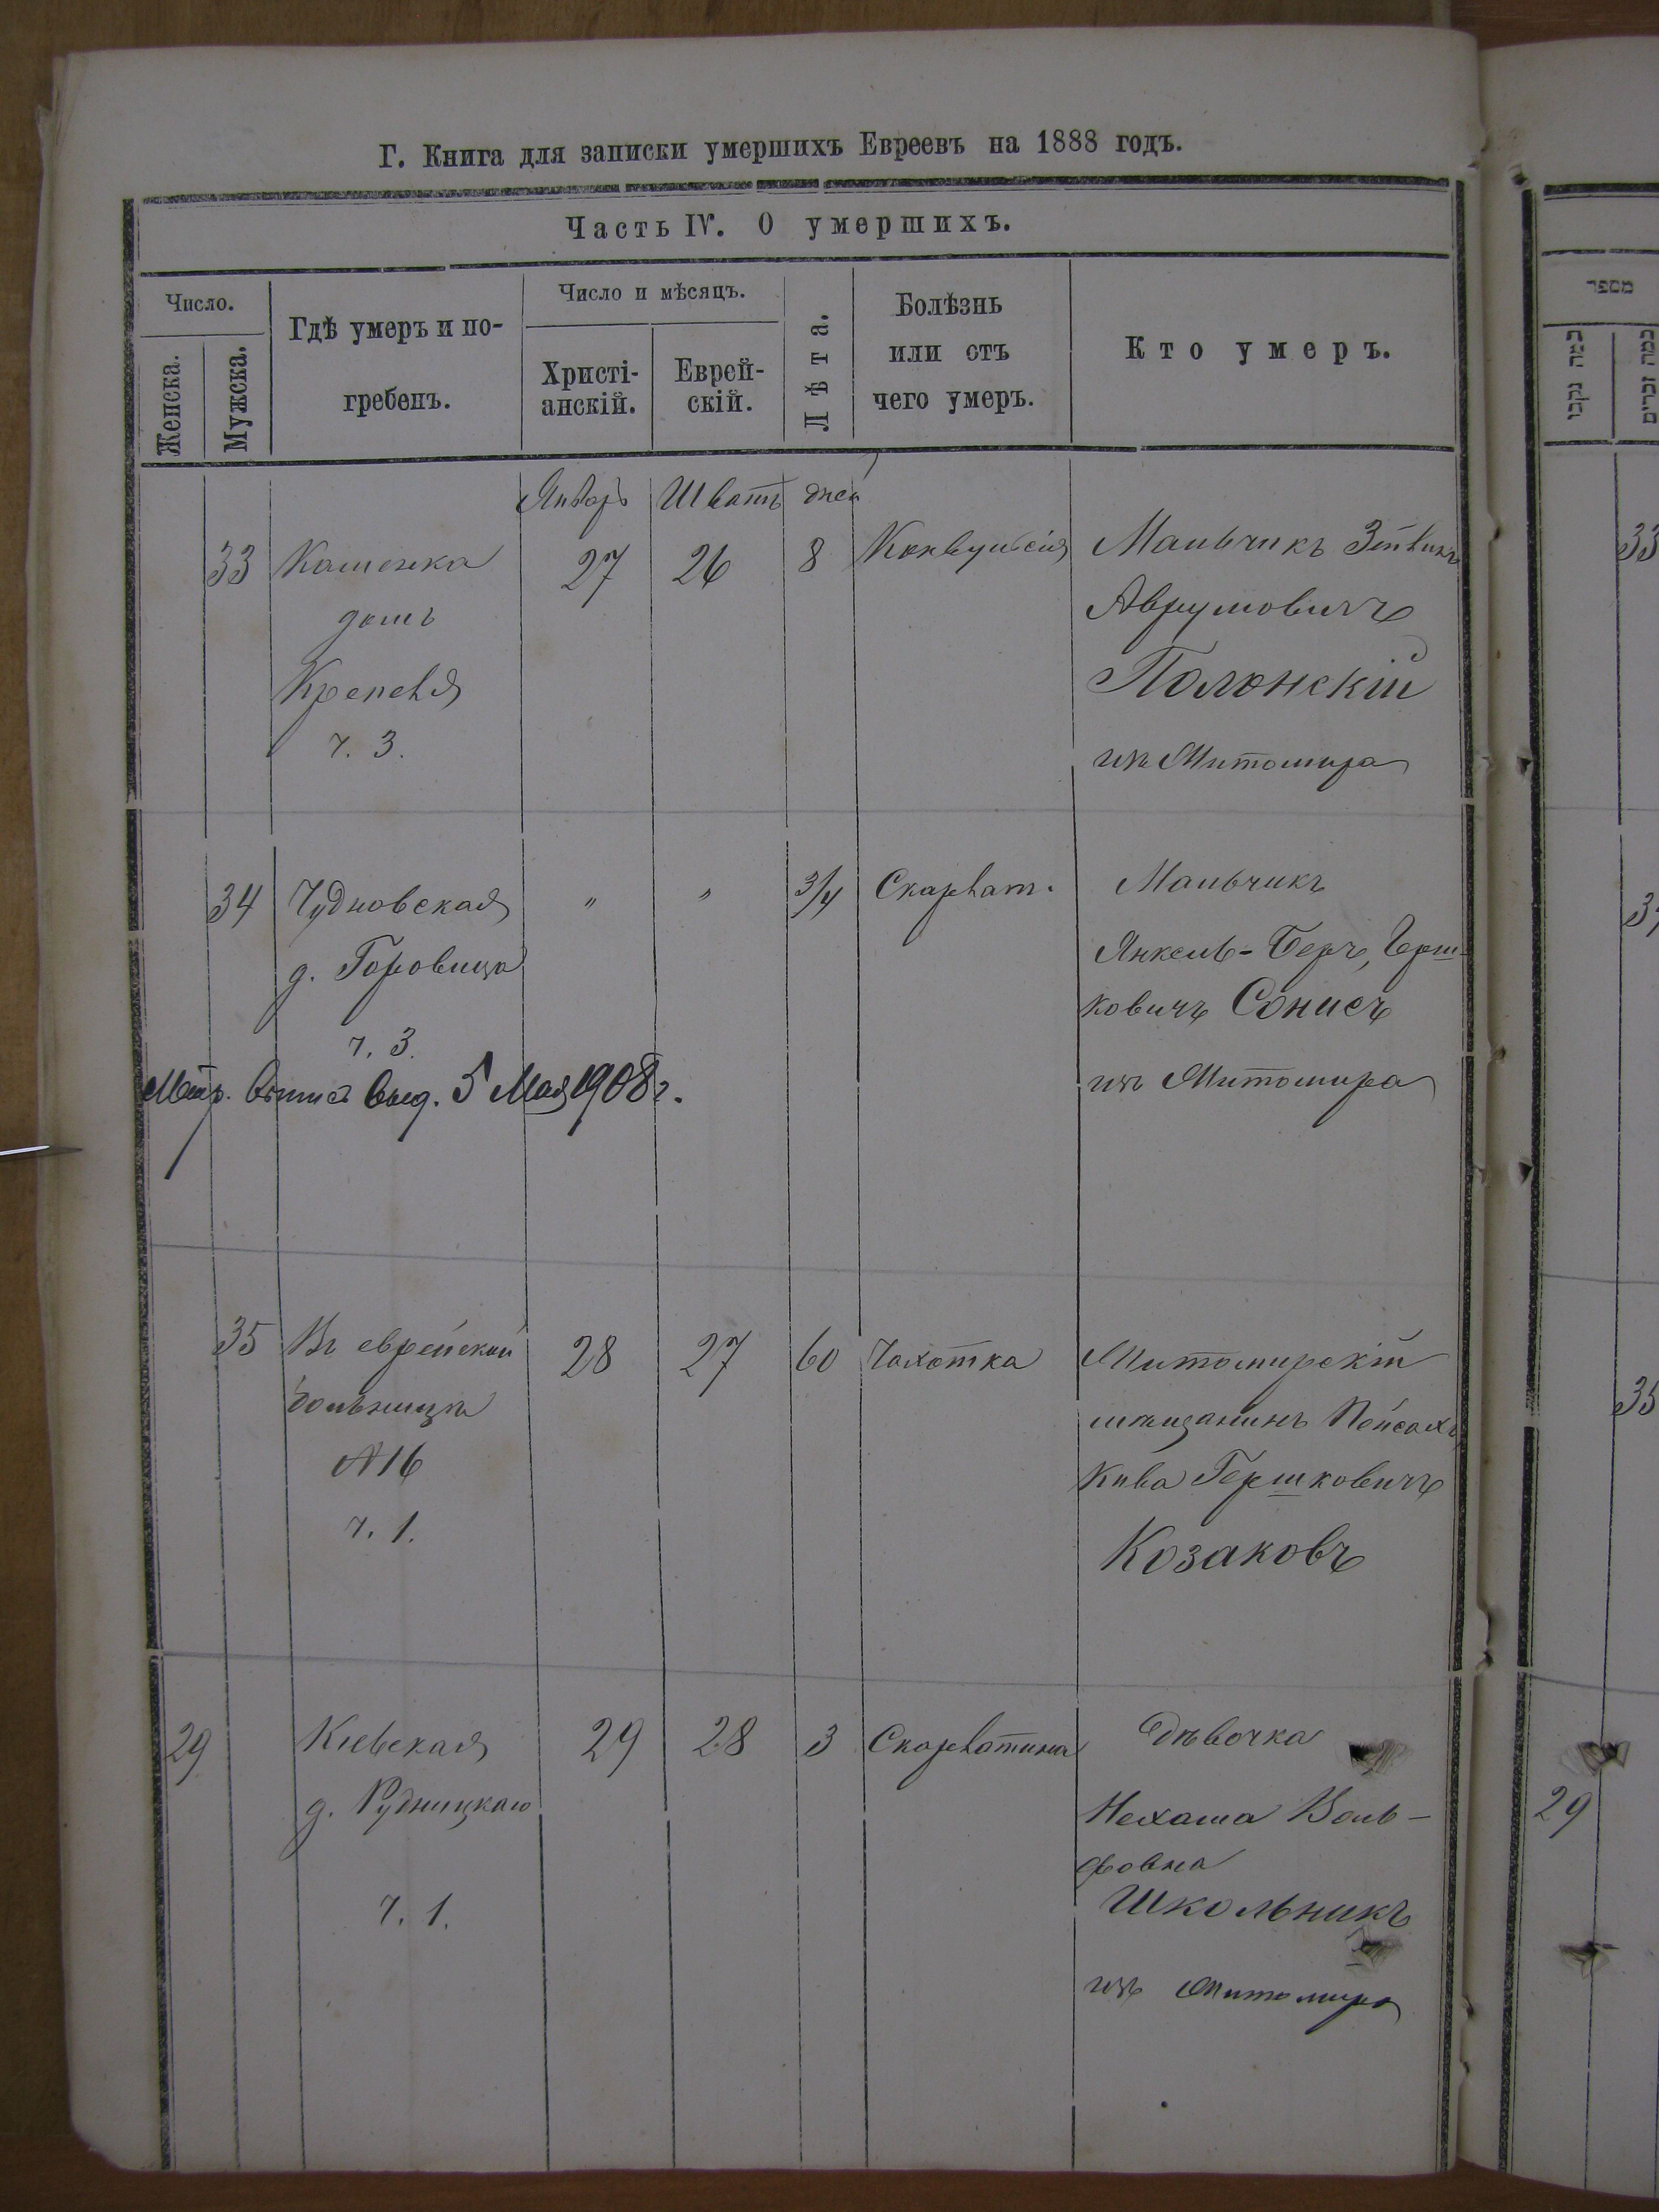 Г. Книга для записки умершихъ Евреевъ на 1888 годъ.
Часть IV. О умершихъ.
Число.
Женска.
Мужска.
Гдѣ умеръ и по-
гребенъ.
Число и мѣсяцъ.
Христі-
анскій.
Еврей-
скій.
Лѣта.
Болѣзнь
или отъ
чего умеръ.
Кто умеръ.
מספר
Январь Шватъ дней
33 27 26 8 Мальчикъ
домъ
Аврумовичъ
Полонскій
ч. 3.
изъ Житомира
34 Чудновская " " 3/4 Скарлат. Мальчикъ
д. Горовица
Янкель-Беръ, Герш-
ковичъ Сонисъ
ч. 3.
изъ Житомира
Метр. выпись выд. 5 Мая 1908 г.
35 Въ еврейской 28 27 60 Чахотка Житомирскій
больницѣ
мѣщанинъ Пейсахъ
№ 16
Кива Гершковичъ
ч. 1.
Козаковъ
29 Кіевская 29 28 3 Скарлатина Дѣвочка
д. Рудницкаго
Нехама Воль-
фовна
ч. 1.
Школьникъ
изъ Житомира
33
34
35
29